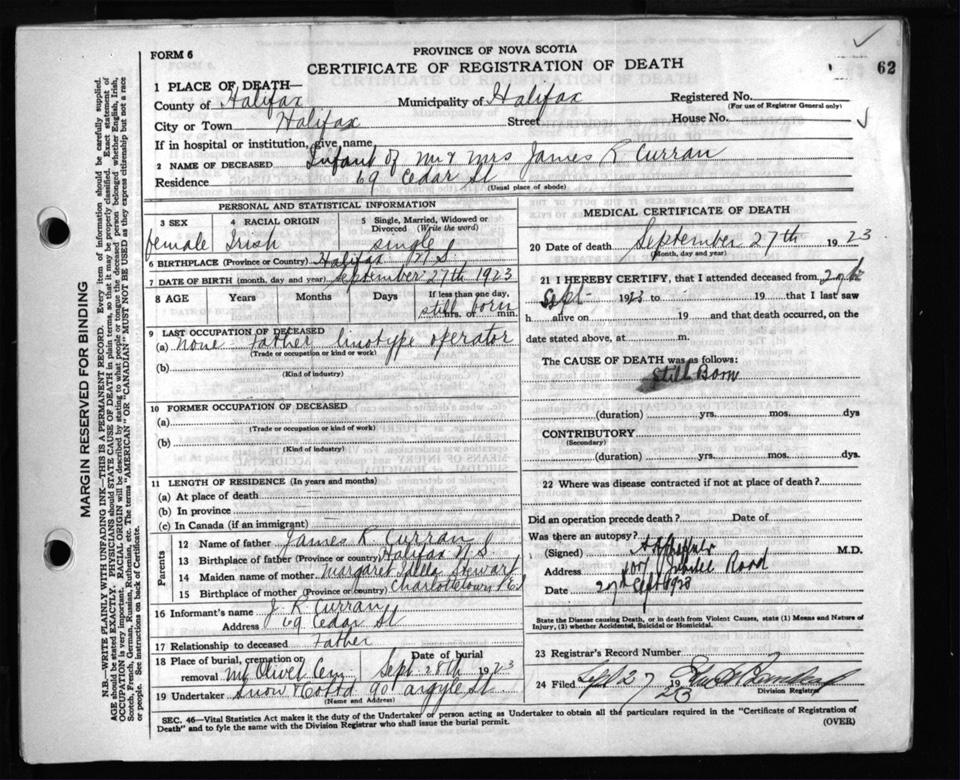 FORM 6
PROVINCE OF NOVA SCOTIA
CERTIFICATE OF REGISTRATION OF DEATH
62
1 PLACE OF DEATH—
County of Halifax Municipality of Halifax Registered No.
(For use of Registrar General only)
City or Town Halifax Street House No.
If in hospital or institution, give name
2 NAME OF DECEASED Infant of Mr & Mrs James R Curran
Residence 69 Cedar St
(Usual place of abode)
PERSONAL AND STATISTICAL INFORMATION
3 SEX 4 RACIAL ORIGIN 5 Single, Married, Widowed or Divorced (Write the word)
female Irish single
6 BIRTHPLACE (Province or Country) Halifax N.S.
7 DATE OF BIRTH (month, day and year) September 27th 1923
8 AGE Years Months Days If less than one day,
still born
hrs. or min.
9 LAST OCCUPATION OF DECEASED
(a) none Father linotype operator
(Trade or occupation or kind or work)
(b)
(Kind of industry)
10 FORMER OCCUPATION OF DECEASED
(a)
(Trade or occupation or kind of work)
(b)
(Kind of industry)
11 LENGTH OF RESIDENCE (In years and months)
(a) At place of death
(b) In province
(c) In Canada (if an immigrant)
Parents
12 Name of father James R Curran
13 Birthplace of father (Province or Country) Halifax N.S.
14 Maiden name of mother Margaret Stewart
15 Birthplace of mother (Province or country) Charlottetown P.E.I
16 Informant's name J. R Curran
Address 69 Cedar St
17 Relationship to deceased Father
18 Place of burial, cremation or removal Mt Olivet Cem Date of burial Sept 28th 1923
19 Undertaker Snow & Co Ltd 90 Argyle St
(Name and Address)
MEDICAL CERTIFICATE OF DEATH
20 Date of death September 27th 1923
(Month, day and year)
21 I HEREBY CERTIFY, that I attended deceased from 27th
Sept 1923 to 19 that I last saw
h alive on 19 and that death occurred, on the
date stated above, at m.
The CAUSE OF DEATH was as follows:
Still Born
(duration) yrs. mos. dys
CONTRIBUTORY
(Secondary)
(duration) yrs. mos. dys.
22 Where was disease contracted if not at place of death?
Did an operation precede death? Date of
Was there an autopsy?
(Signed) M.D.
Address Road
Date 27th Sept
State the Disease causing Death, or in death from Violent Causes, state (1) Means and Nature of
Injury, (2) whether Accidental, Suicidal or Homicidal.
23 Registrar's Record Number
24 Filed Sept 27 1923
Division Registrar
SEC. 46—Vital Statistics Act makes it the duty of the Undertaker or person acting as Undertaker to obtain all the particulars required in the "Certificate of Registration of
Death" and to fyle the same with the Division Registrar who shall issue the burial permit.
(OVER)
MARGIN RESERVED FOR BINDING
N.B.—WRITE PLAINLY WITH UNFADING INK—THIS IS A PERMANENT RECORD. Every item of information should be carefully supplied.
AGE should be stated EXACTLY. PHYSICIANS should STATE CAUSE OF DEATH in plain terms, so that it may be properly classified. Exact statement of
OCCUPATION is very important. RACIAL ORIGIN will be described by stating to what people or tongue the deceased person belonged whether English, Irish,
Scotch, French, German, Russian, Ruthenian, etc. The terms "AMERICAN" or "CANADIAN" MUST NOT BE USED as they express citizenship but not a race
or people. See instructions on back of Certificate.